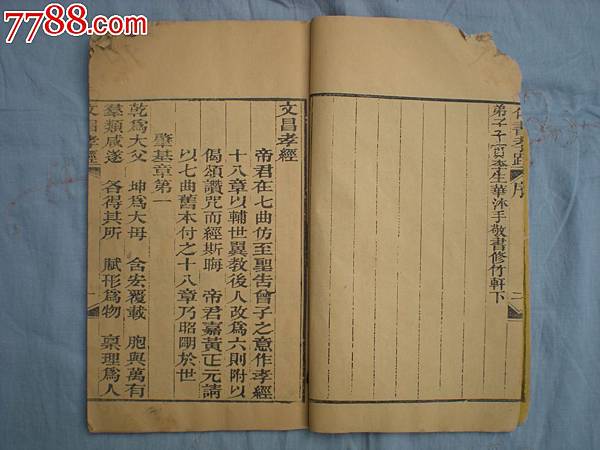 7788.com
書孝 序 二
弟子 李生華沐手敬書修竹軒下
文昌孝經
帝君在七曲仿至聖告曾子之意作孝經
十八章以輔世翼教後人改爲六則附以
偈頌讚咒而經斯晦 帝君嘉黃正元請
以七曲舊本付之十八章乃昭朙於世
肇基章第一
乾爲大父 坤爲大母 含宏覆載 胞與萬有
羣類咸遂 各得其所 賦形爲物 稟理爲人
文昌孝經 一